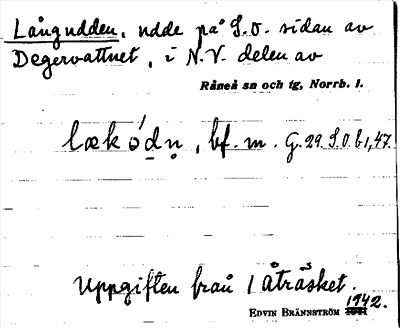 Långudden, udde på S.O. sidan av
Degervattnet, i N.V. delen av
Råneå sn och tg, Norrb. l.
lækó̱dṇ, bf. m. G. 29. S.O. b 1, 47.
Uppgiften från Åträsket.
1942.
EDVIN BRÄNNSTRÖM